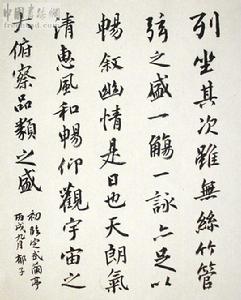 列坐其次雖無絲竹管
弦之盛一觴一詠亦足以
暢敘幽情是日也天朗氣
清惠風和暢仰觀宇宙之
大俯察品類之盛
初臨定武蘭亭
丙戌九月郁子